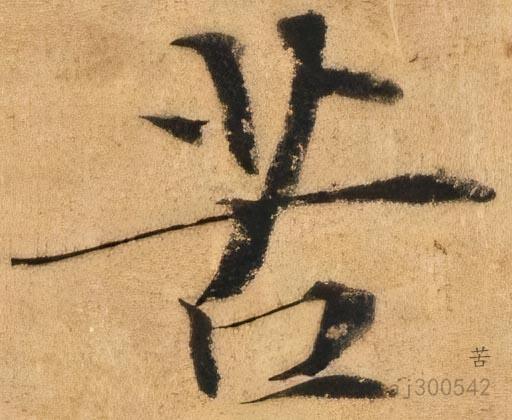 苦
苦
j300542